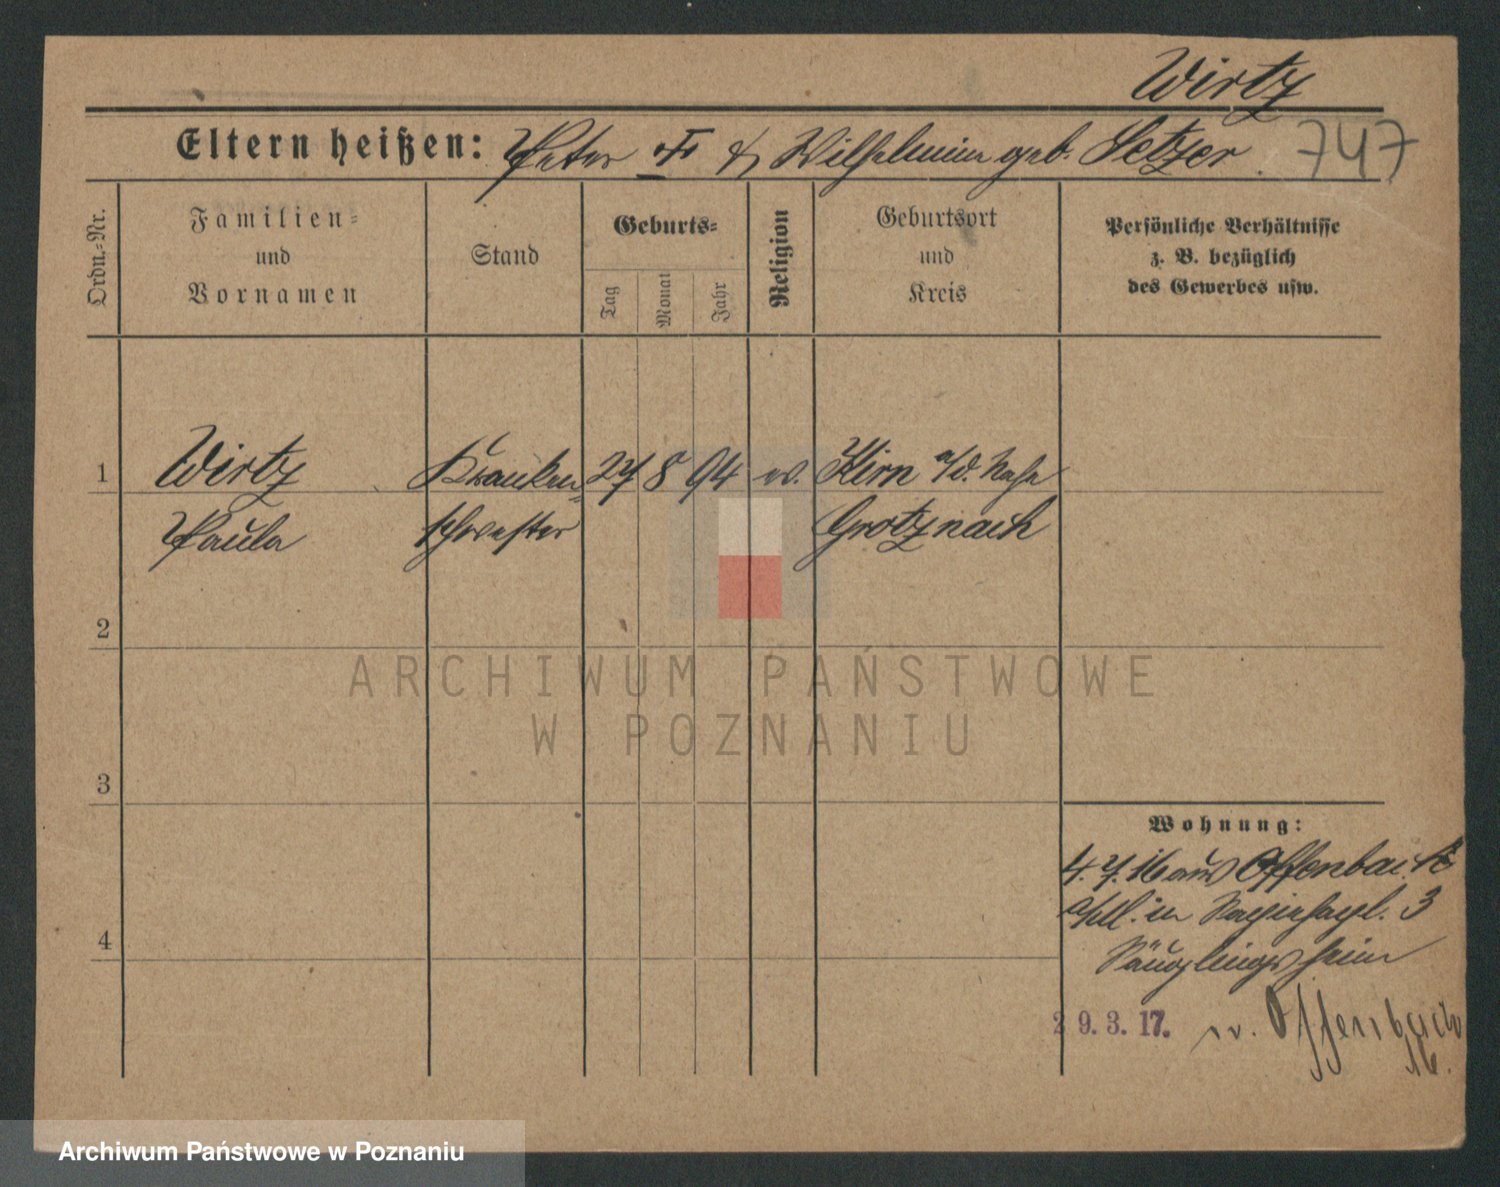 Wirtz
Eltern heißen: Peter & Wilhelmine geb. Setzer. 747
Ordn.-Nr.
Familien-
und
Vornamen
Stand
Geburts-
Tag
Monat
Jahr
Religion
Geburtsort
und
Kreis
Persönliche Verhältnisse
z. B. bezüglich
des Gewerbes usw.
1 Wirtz Kranken- 27 8 94 ev. Kirn a/d. Nahe
Paula schwester
2
3
4
Wohnung:
4. 7. 16 aus Offenbach
3
Säuglingsheim
29. 3. 17. n. Offenbach
ARCHIWUM PAŃSTWOWE
W POZNANIU
Archiwum Państwowe w Poznaniu